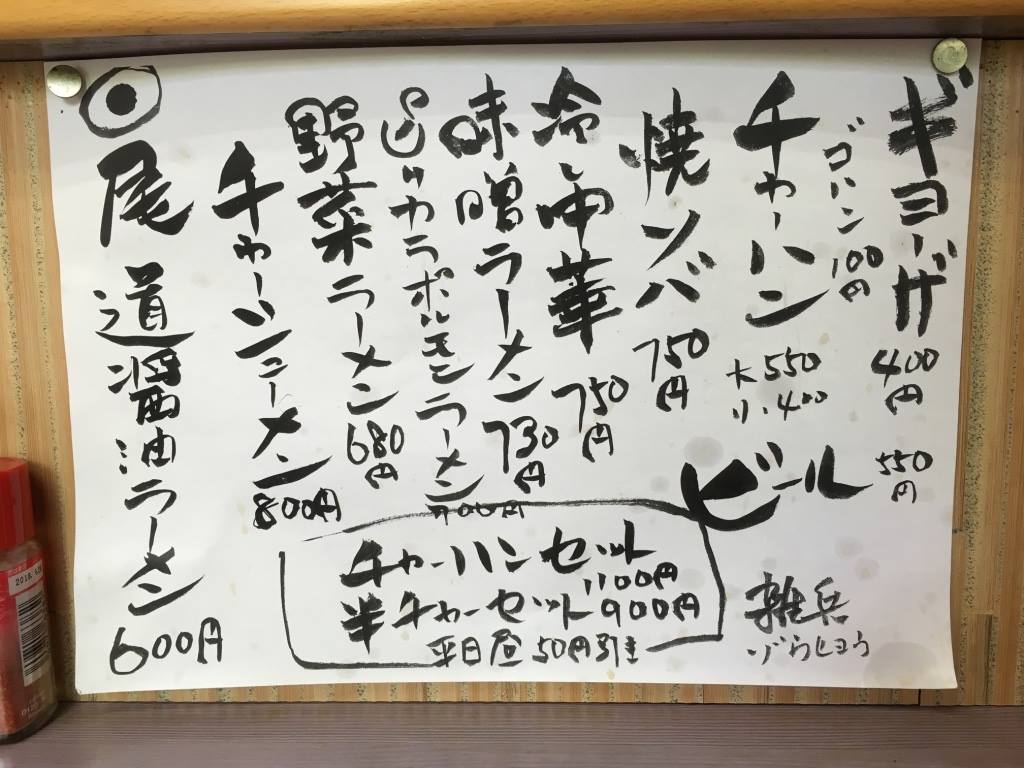 ギョーザ 400円
ゴハン 100円
チャーハン 大550 小400
焼ソバ 750円
冷し中華 750円
味噌ラーメン 730円
ピリカラホルモンラーメン 700円
野菜ラーメン 680円
チャーシューメン 800円
◉尾道醤油ラーメン 600円
ビール 550円
チャーハンセット 1100円
半チャーセット 900円
平日昼 50円引き
雑兵
ぞうひょう
2018.